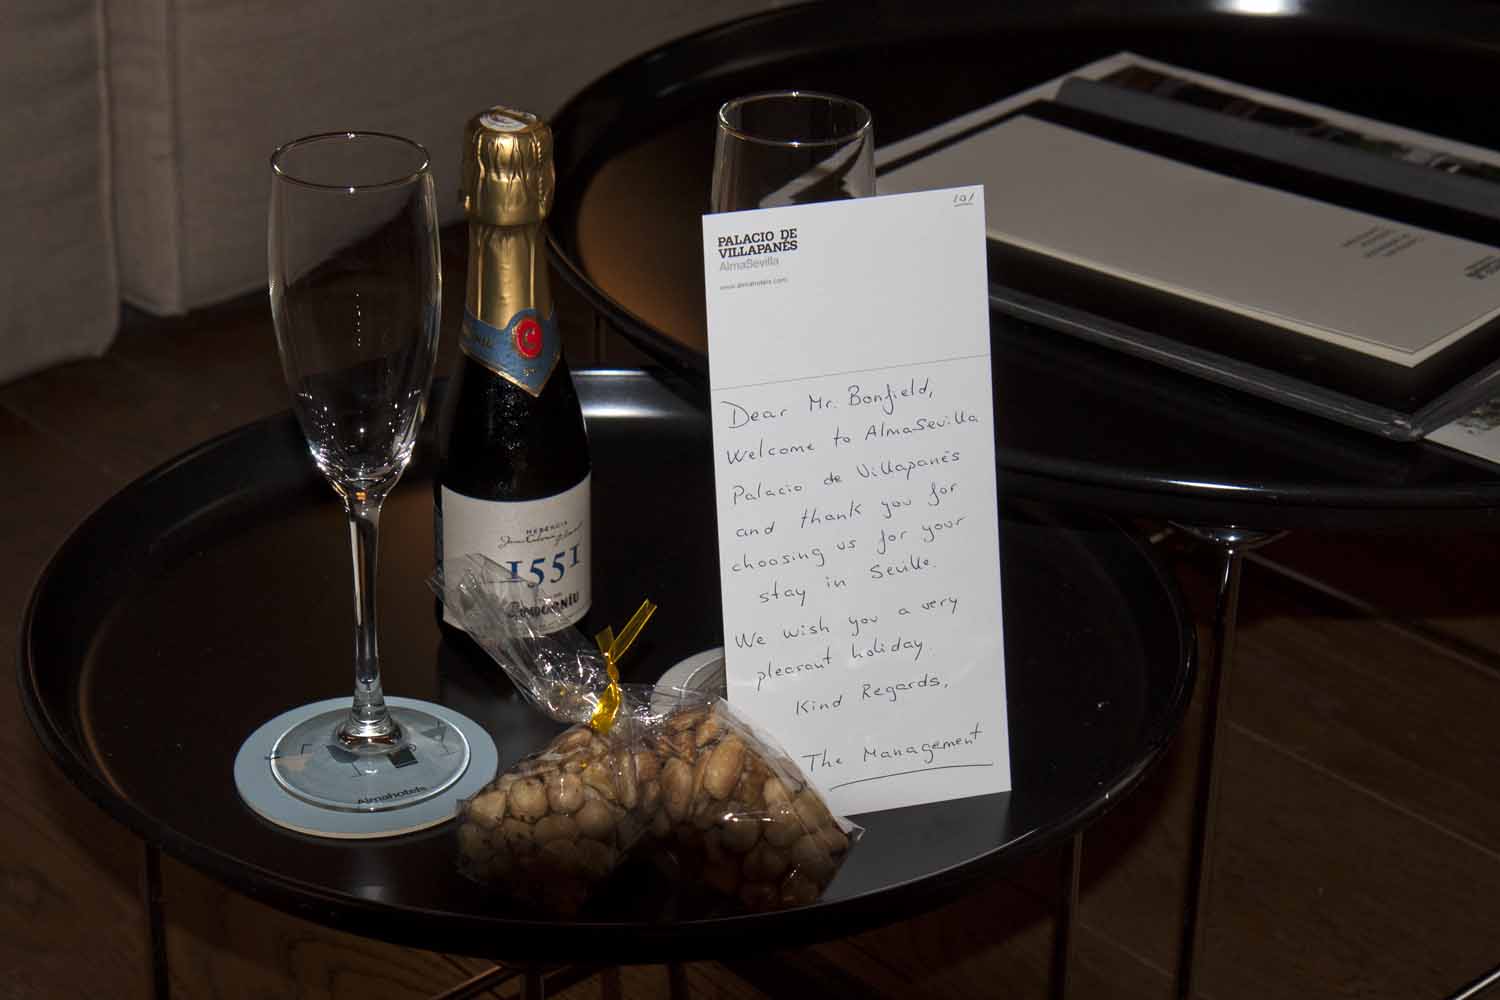 101
PALACIO DE
VILLAPANÉS
AlmaSevilla
www.almahotels.com
Dear Mr. Bonfield,
Welcome to AlmaSevilla
Palacio de Villapanés
and thank you for
choosing us for your
stay in Seville.
We wish you a very
pleasant holiday.
Kind Regards,
The Management
HEREDERO
1551
CODORNÍU
C
Almahotels